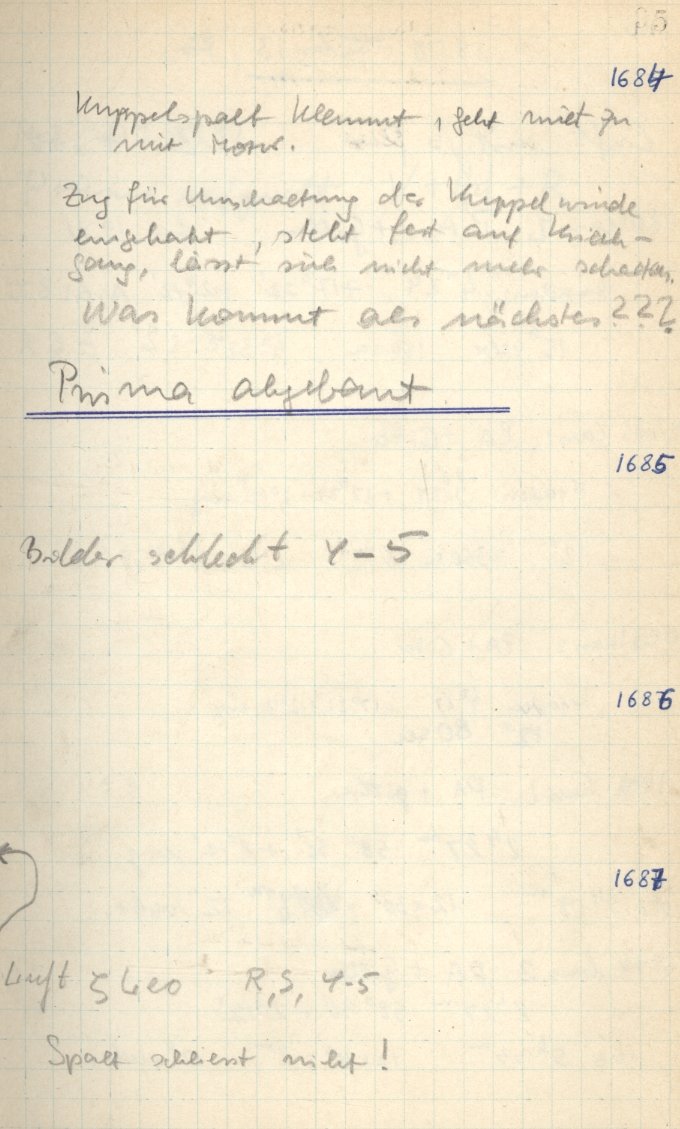 59
1684
Kuppelspalt klemmt, geht nicht zu
mit Motor.
Zug für Umschaltung der Kuppelwinde
eingehakt, steht fest auf
gang, lässt sich nicht mehr schalten.
Was kommt als nächstes???
Prisma abgebaut
1685
Bilder schlecht 4-5
1686
1687
Luft ζ Leo R, S, 4-5
Spalt schliesst nicht!